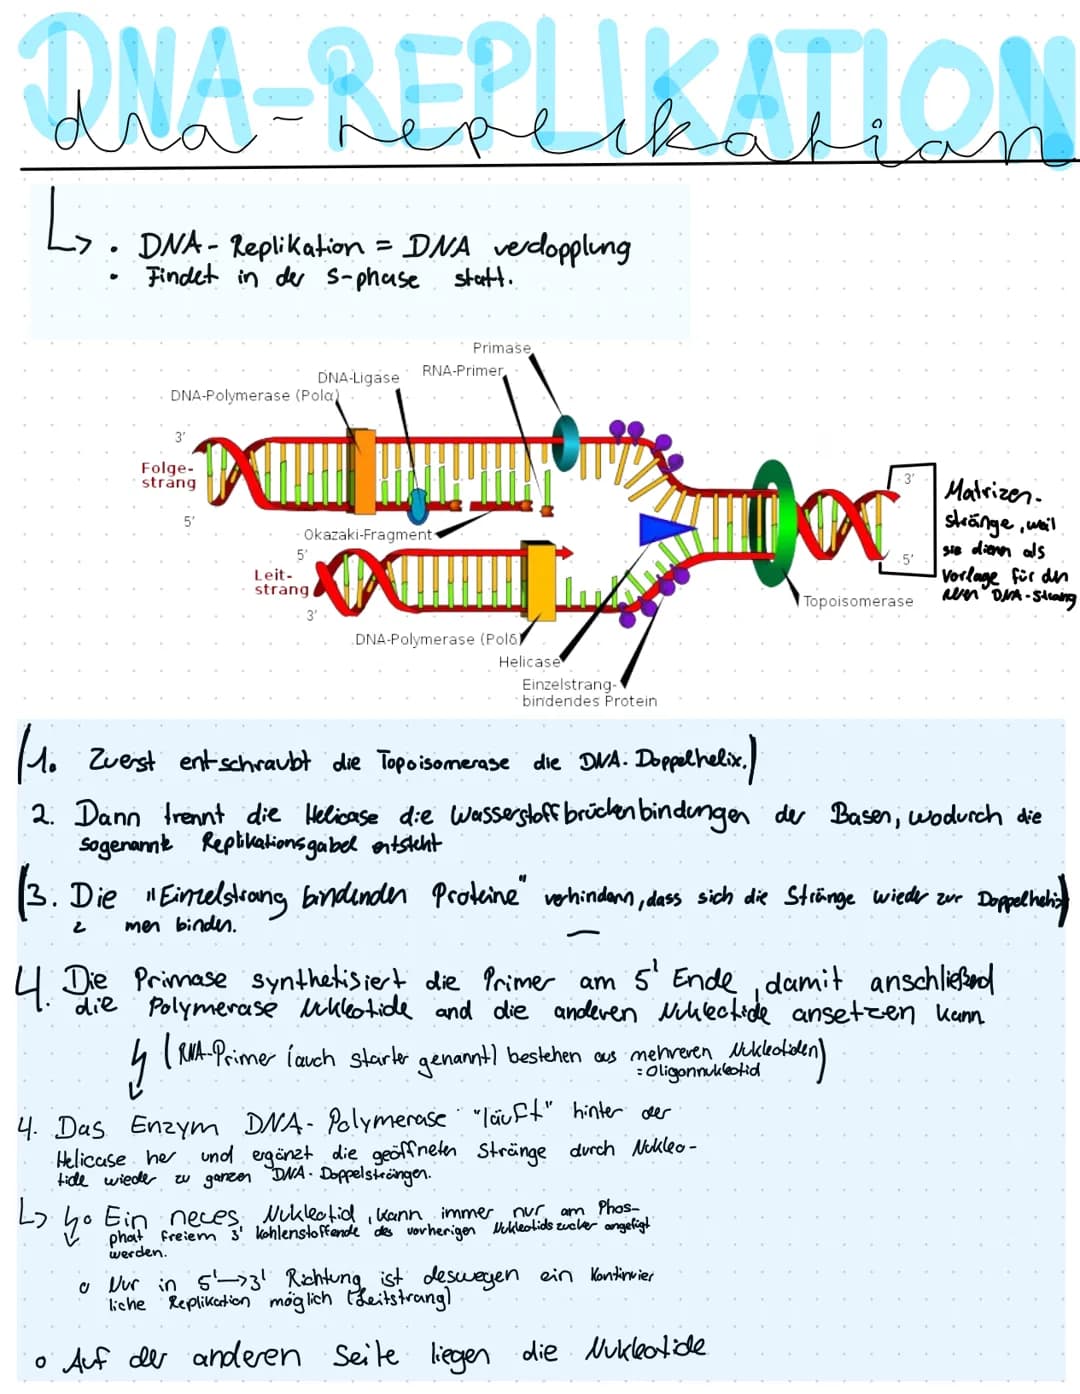 DNA-REPLIKATION
dna-replikation
DNA-Replikation = DNA verdopplung
Findet in der S-phase statt.
Primase
RNA-Primer
DNA-Ligase
DNA-Polymerase (Polα)
3'
Folge-
strang
5'
Okazaki-Fragment
5'
Leit-
strang
3'
DNA-Polymerase (Polδ)
Helicase
Einzelstrang-
bindendes Protein
Topoisomerase
3'
5'
Matrizen-
stränge, weil
sie dienen als
Vorlage für den
neuen DNA-Strang
(1. Zuerst entschraubt die Topoisomerase die DNA-Doppelhelix.)
2. Dann trennt die Helicase die Wasserstoffbrückenbindungen der Basen, wodurch die
sogenannte Replikationsgabel entsteht
(3. Die "Einzelstrang bindenden Proteine" verhindern, dass sich die Stränge wieder zur Doppelhelix)
men binden.
4. Die Primase synthetisiert die Primer am 5' Ende, damit anschließend
die Polymerase Nukleotide and die anderen Nukleotide ansetzen kann
(RNA-Primer (auch starter genannt) bestehen aus mehreren Nukleotiden)
=Oligonnukleotid
4. Das Enzym DNA-Polymerase "läuft" hinter der
Helicase her und ergänzt die geöffneten Stränge durch Nukleo-
tide wieder zu ganzen DNA-Doppelsträngen.
Ein neues Nukleotid, kann immer nur am Phos-
phat freiem 3' kohlenstoffende des vorherigen Nukleotids zucker angefügt
werden.
Nur in 5'→3' Richtung ist deswegen ein kontinuier
liche Replikation möglich (Leitstrang)
Auf der anderen Seite liegen die Nukleotide